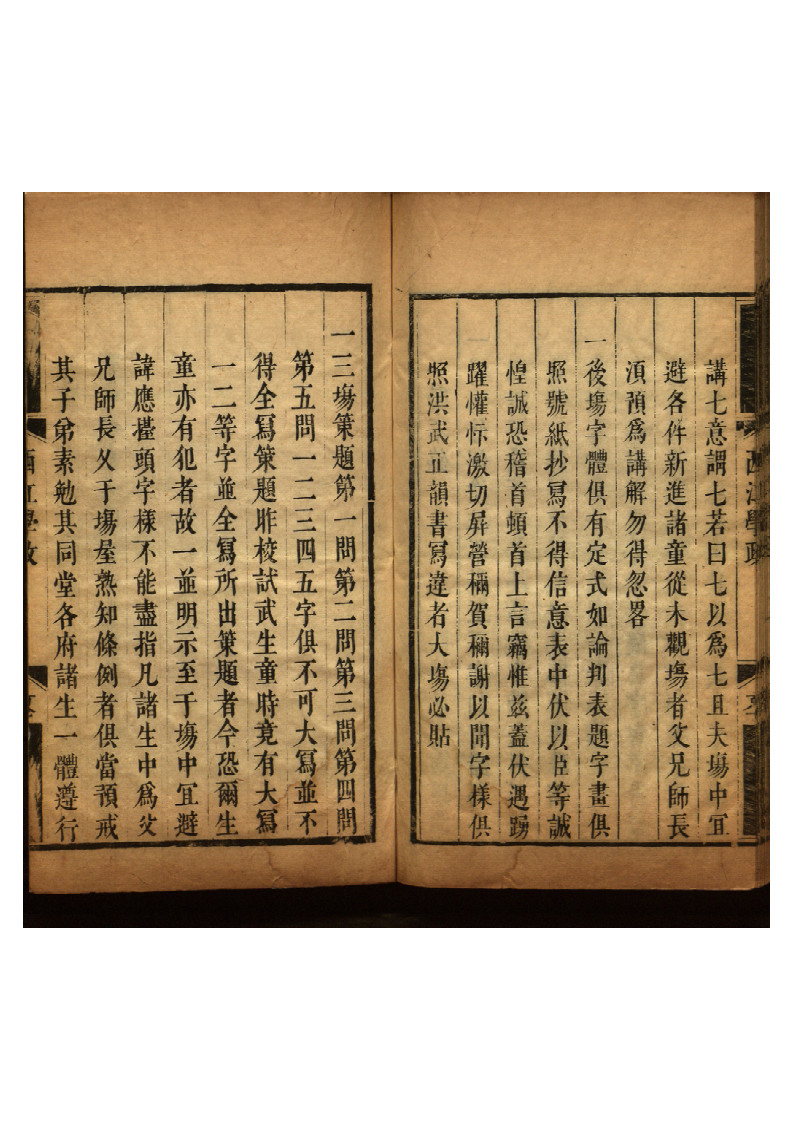 西江學政
講七意謂七若曰七以爲七且夫塲中冝
避各件新進諸童從未觀塲者父兄師長
湏預爲講解勿得忽畧
一後塲字體俱有定式如論判表題字畫俱
照號紙抄寫不得信意表中伏以臣等誠
惶誠恐稽首頓首上言竊惟兹蓋伏遇踴
躍懽忭激切屏營稱賀稱謝以聞字樣俱
照洪武正韻書寫違者大塲必貼
一三塲策題第一問第二問第三問第四問
第五問一二三四五字俱不可大寫並不
得全寫策題昨校試武生童時竟有大寫
一二等字並全寫所出策題者今恐爾生
童亦有犯者故一並明示至于塲中冝避
諱應擡頭字様不能盡指凡諸生中爲父
兄師長久于塲屋熟知條例者俱當預戒
其子弟素勉其同堂各府諸生一體遵行
西江學政